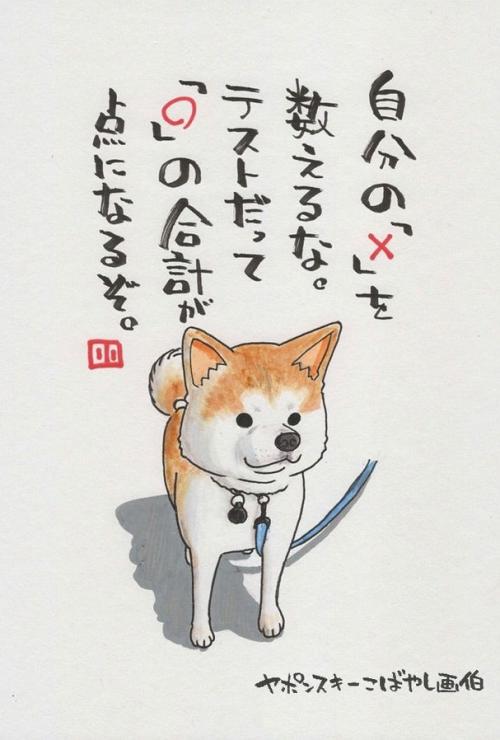 自分の「×」を
数えるな。
テストだって
「○」の合計が
点になるぞ。
ヤポンスキーこばやし画伯